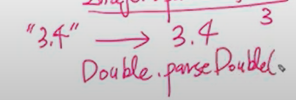 3
"3.4" → 3.4
Double.parseDouble(.